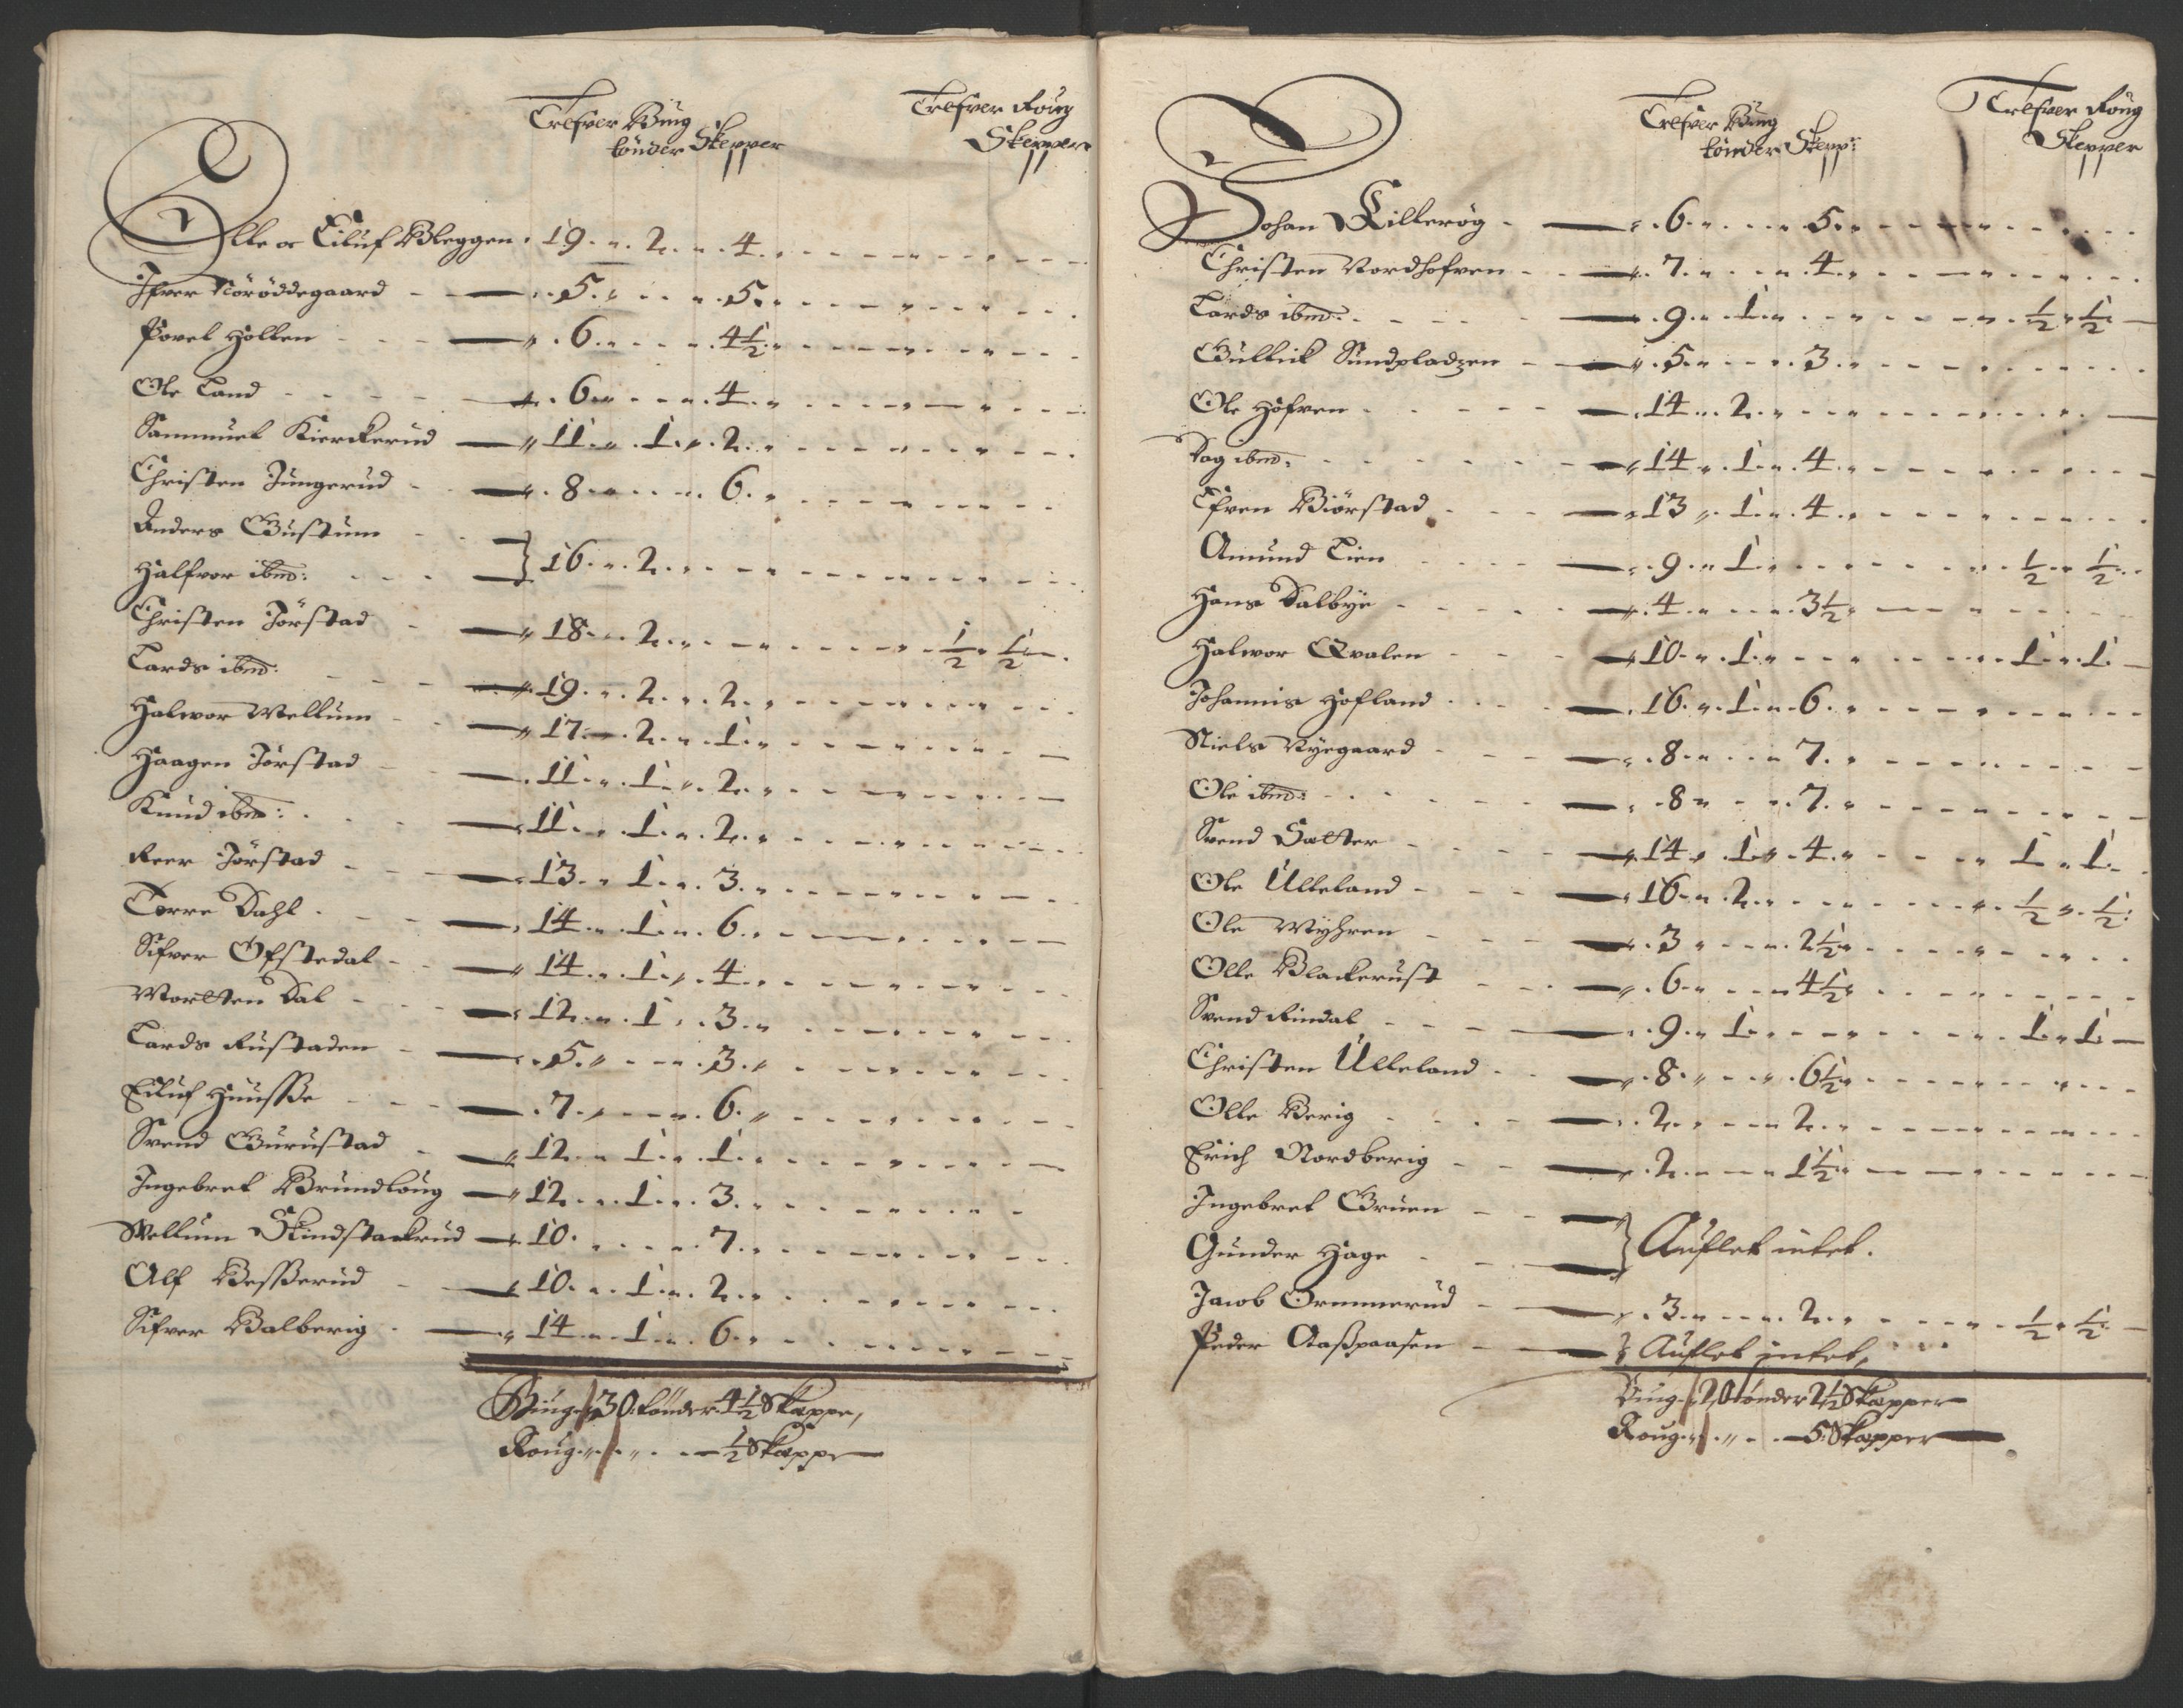 Trefver Biug
tönder Skepper
Trefver Roug
Skepper
Olle oc Eiluf Bleggen. 19. 2. 4.
Ifver Noröddegaard 5. 5.
Povel Hollen 6. 4½
Ole Land 6. 4.
Sammuel Kierckerud 11. 1. 2.
Christen Jungerud 8. 6.
Anders Gustum
Halfvor ibm: } 16. 2.
Christen Jörstad 18. 2. ½ ½
Lards ibm: 19. 2. 2.
Halvor Mellum 17. 2. 1.
Haagen Jörstad 11. 1. 2.
Knud ibm: 11. 1. 2.
Reer Jörstad 13. 1. 3.
Torre Dahl 14. 1. 6.
Sifver Ofstedal 14. 1. 4.
Mortten Dal 12. 1. 3.
Lards Rustaden 5. 3.
Eiluf Huusße 7. 6.
Svend Gurustad 12. 1. 1.
Ingebret Brundloug 12. 1. 3.
Mellum Skindstackrud 10. 7.
Alf Besßerud 10. 1. 2.
Sifver Balberig 14. 1. 6.
Biug 30 tönder 4½ Skappe,
Roug ½ Skappe
Trefver Biug
tönder Skepp:
Trefver Roug
Skepper
Johan Lillerög 6. 5.
Christen Nordhofven 7. 4.
Lards ibm: 9. 1. ½ ½
Gullick Sundpladzen 5. 3.
Ole Hofven 14. 2.
Dag ibm: 14. 1. 4.
Efven Biörstad 13. 1. 4.
Amund Lien 9. 1. ½ ½
Hans Dalbye 4. 3½
Halvor Qvalen 10. 1. 1. 1.
Johannis Hofland 16. 1. 6.
Niels Nyegaard 8. 7.
Ole ibm: 8. 7.
Svend Sletter 14. 1. 4. 1. 1.
Ole Ulleland 16. 2. ½ ½
Ole Myhren 3 2½
Olle Blackerust 6. 4½
Svend Rindal 9. 1. 1. 1.
Christen Ulleland 8. 6½
Olle Berig 2. 2.
Erich Nordberig 2. 1½
Ingebret Gruen
Gunder Hage } Auflet intet.
Jacob Ormmerud 3. 2. ½ ½
Peder Aaßpaasen } Auflet intet,
Biug 20 tönder 2½ Skapper
Roug 5 Skapper